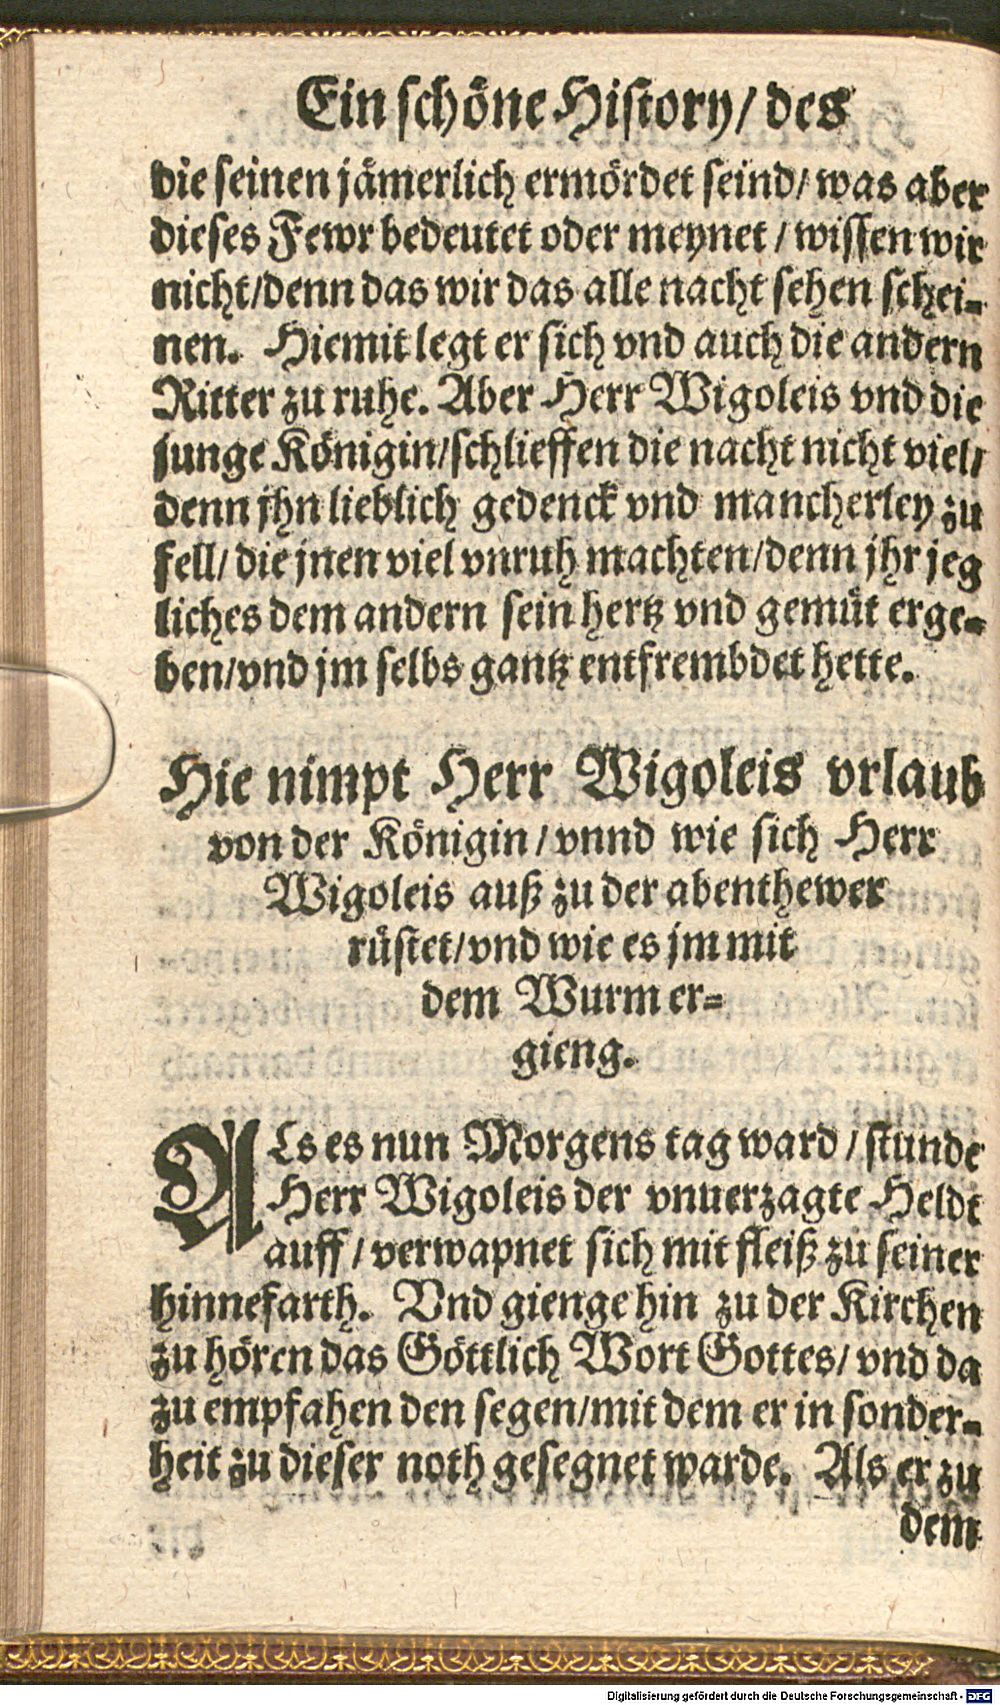 Ein schöne History/ des
die seinen jämerlich ermördet seind/ was aber
dieses Fewr bedeutet oder meynet / wissen wir
nicht/denn das wir das alle nacht sehen schei-
nen. Hiemit legt er sich vnd auch die andern
Ritter zu ruhe. Aber Herr Wigoleis vnd die
junge Königin/schlieffen die nacht nicht viel/
denn jhn lieblich gedenck vnd mancherley zu
fell/ die jnen viel vnruh machten/denn jhr jeg
liches dem andern sein hertz vnd gemüt erge-
ben/vnd jm selbs gantz entfrembdet hette.
Hie nimpt Herr Wigoleis vrlaub
von der Königin / vnnd wie sich Herr
Wigoleis auß zu der abenthewer
rüstet/vnd wie es jm mit
dem Wurm er-
gieng.
ALs es nun Morgens tag ward / stunde
Herr Wigoleis der vnuerzagte Heldt
auff / verwapnet sich mit fleiß zu seiner
hinnefarth. Vnd gienge hin zu der Kirchen
zu hören das Göttlich Wort Gottes/ vnd da
zu empfahen den segen/mit dem er in sonder-
heit zu dieser noth gesegnet warde. Als er zu
dem
Digitalisierung gefördert durch die Deutsche Forschungsgemeinschaft - DFG